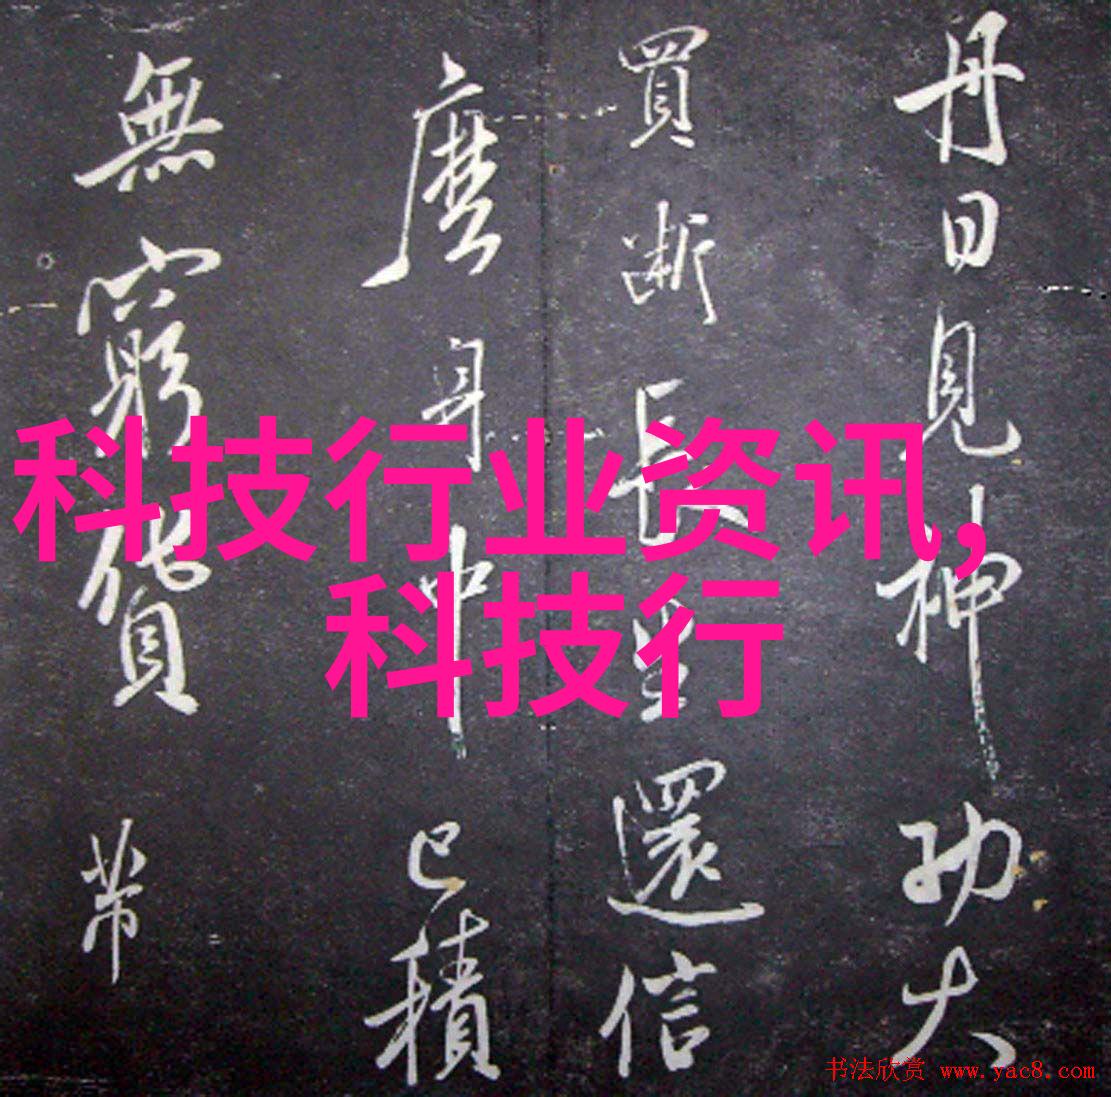 丹日見神功大
買斷長生還信
麼身中已積
無窮貨带
科技行业资讯,
科技行
书法欣赏 www.yac8.com